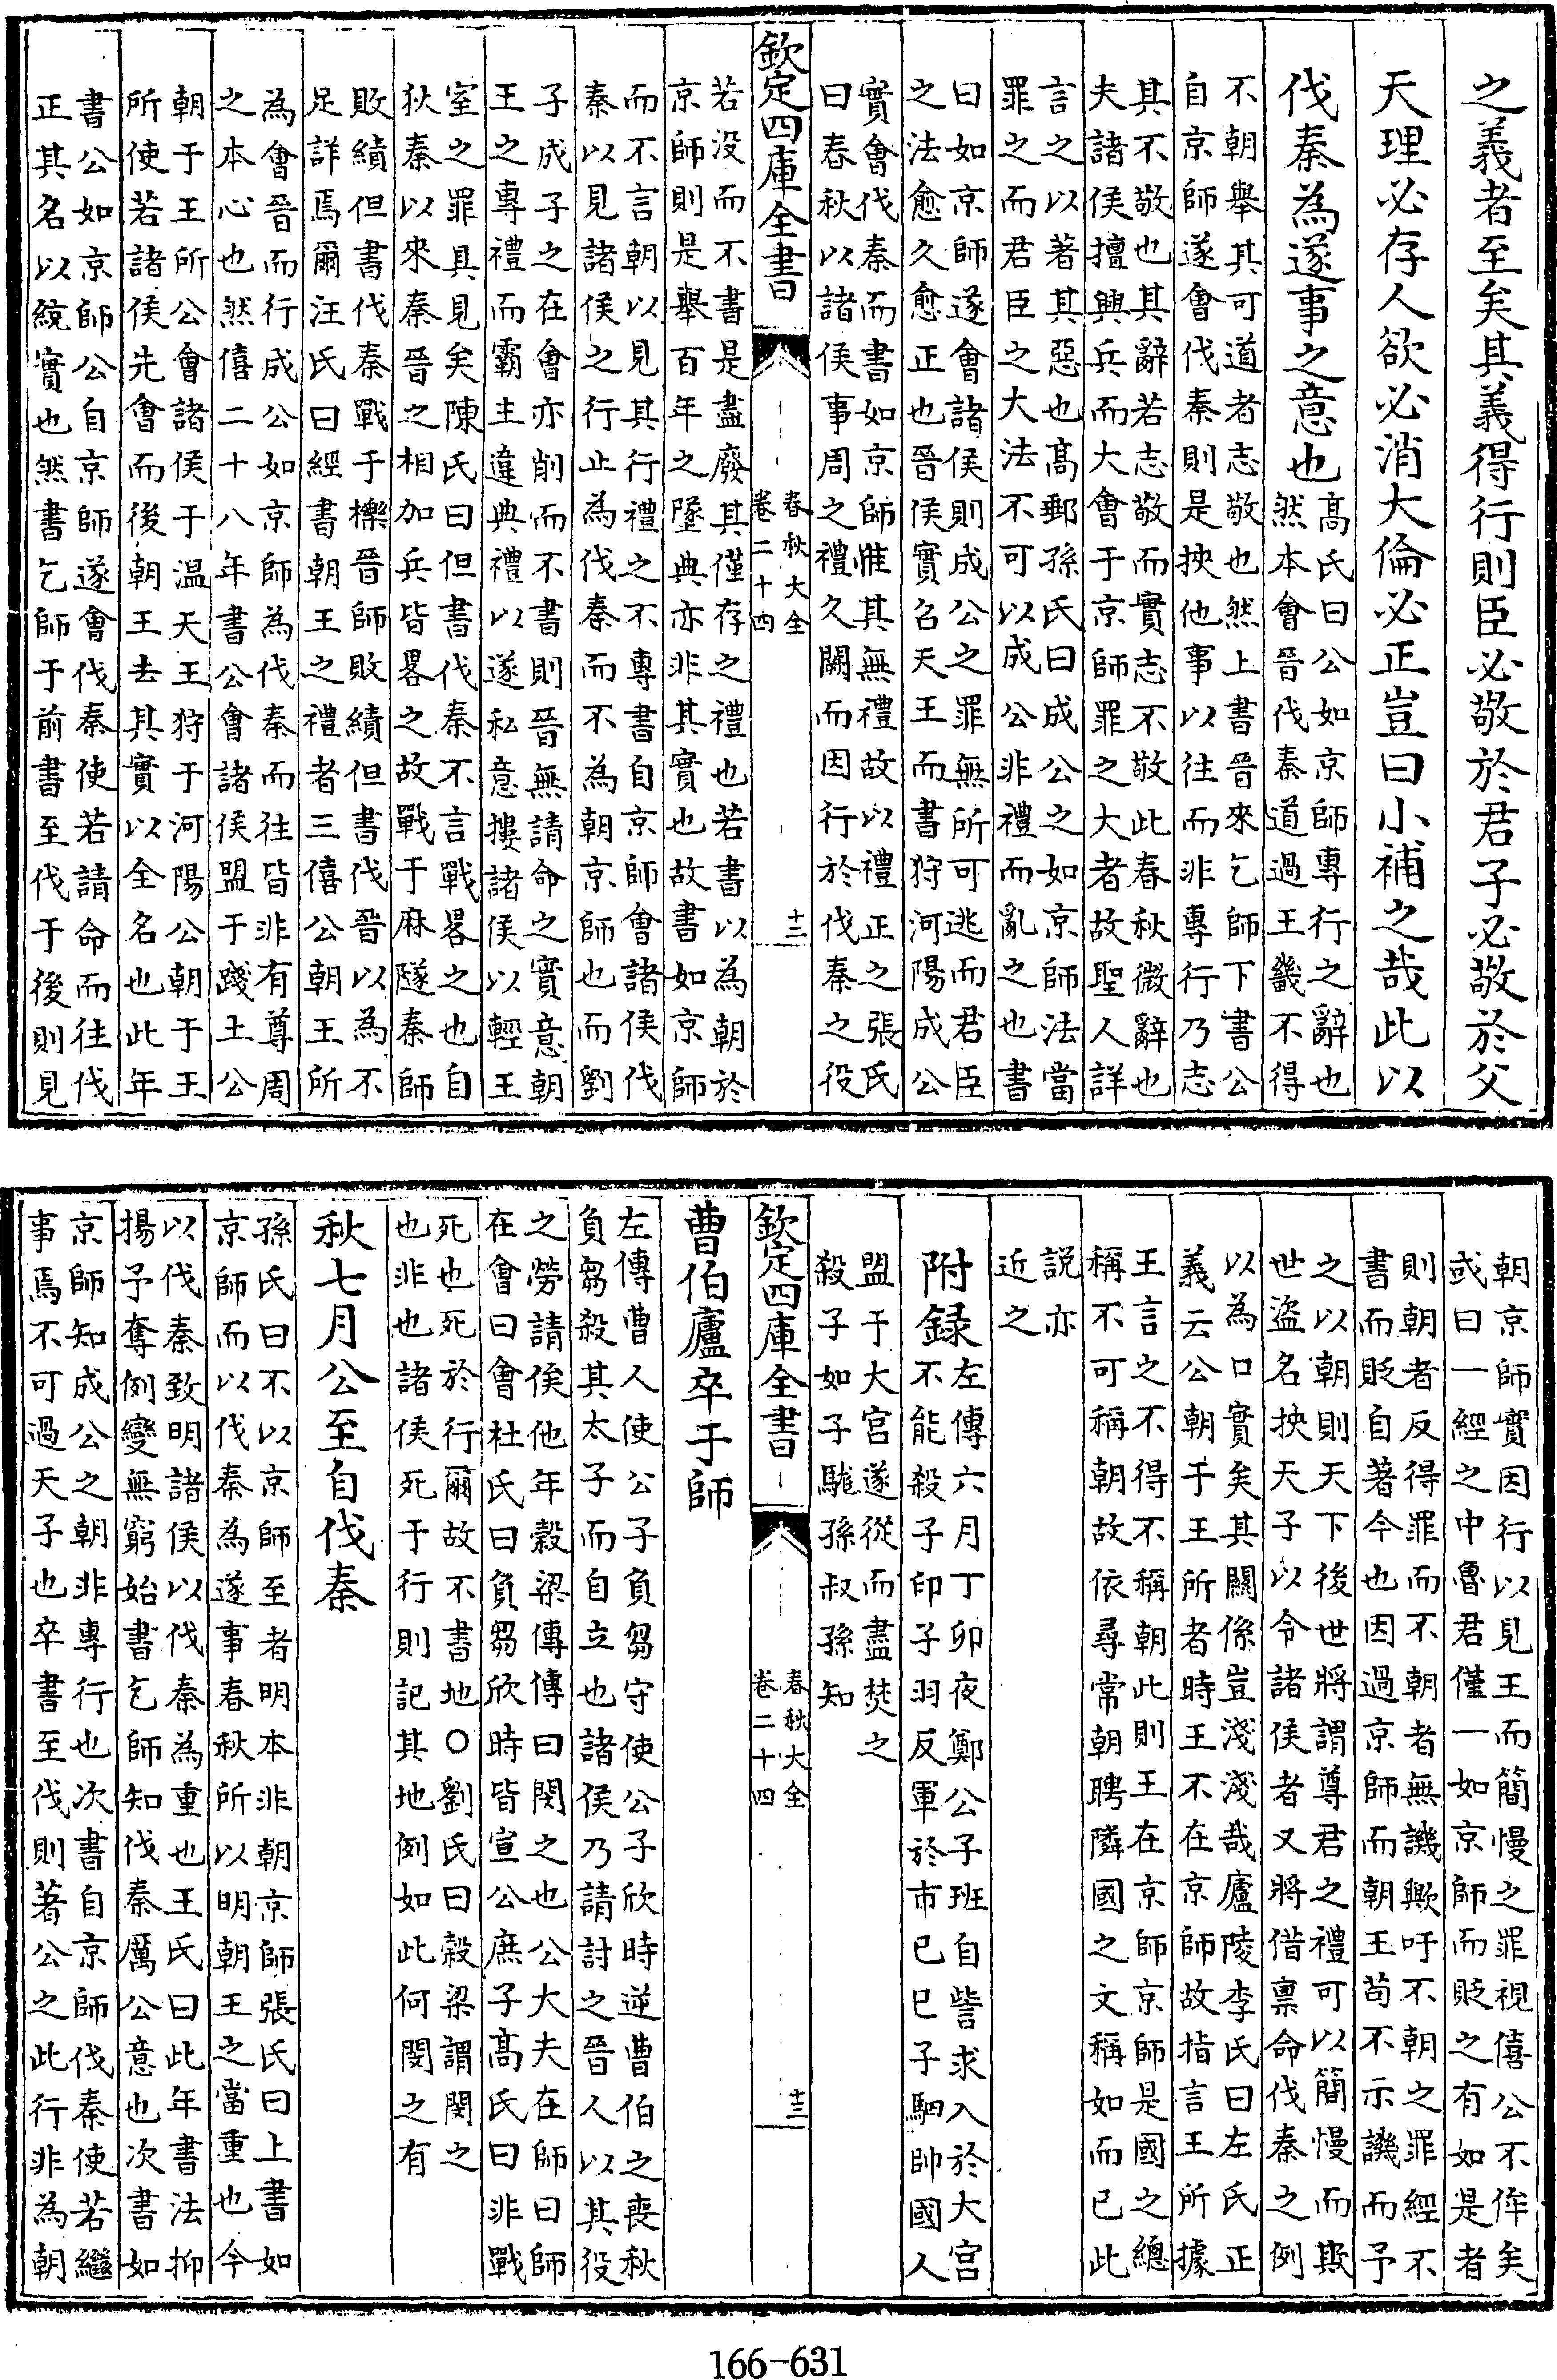 之義者至矣其義得行則臣必敬於君子必敬於父
天理必存人欲必消大倫必正豈曰小補之哉此以
伐秦為遂事之意也
高氏曰公如京師專行之辭也
然本會晉伐秦道過王畿不得
不朝舉其可道者志敬也然上書晉來乞師下書公
自京師遂會伐秦則是挾他事以往而非專行乃志
其不敬也其辭若志敬而實志不敬此春秋微辭也
夫諸侯擅興兵而大會于京師罪之大者故聖人詳
言之以著其惡也髙郵孫氏曰成公之如京師法當
罪之而君臣之大法不可以成公非禮而亂之也書
曰如京師遂會諸侯則成公之罪無所可逃而君臣
之法愈久愈正也晉侯實召天王而書狩河陽成公
實會伐秦而書如京師惟其無禮故以禮正之張氏
曰春秋以諸侯事周之禮久闕而因行於伐秦之役
欽定四庫全書
春秋大全
卷二十四
十二
若没而不書是盡廢其僅存之禮也若書以為朝於
京師則是舉百年之墜典亦非其實也故書如京師
而不言朝以見其行禮之不專書自京師會諸侯伐
秦以見諸侯之行止為伐秦而不為朝京師也而劉
子成子之在會亦削而不書則晉無請命之實意朝
王之專禮而霸主違典禮以遂私意摟諸侯以輕王
室之罪具見矣陳氏曰但書伐秦不言戰畧之也自
狄秦以來秦晉之相加兵皆畧之故戰于麻隧秦師
敗績但書伐秦戰于櫟晉師敗績但書伐晉以為不
足詳焉爾汪氏曰經書朝王之禮者三僖公朝王所
為會晉而行成公如京師為伐秦而往皆非有尊周
之本心也然僖二十八年書公會諸侯盟于踐土公
朝于王所公會諸侯于温天王狩于河陽公朝于王
所使若諸侯先會而後朝王去其實以全名也此年
書公如京師公自京師遂會伐秦使若請命而往伐
正其名以統實也然書乞師于前書至伐于後則見
朝京師實因行以見王而簡慢之罪視僖公不侔矣
或曰一經之中魯君僅一如京師而貶之有如是者
則朝者反得罪而不朝者無譏歟吁不朝之罪經不
書而貶自著今也因過京師而朝王苟不示譏而予
之以朝則天下後世將謂尊君之禮可以簡慢而欺
世盜名挾天子以令諸侯者又將借禀命伐秦之例
以為口實矣其關係豈淺淺哉廬陵李氏曰左氏正
義云公朝于王所者時王不在京師故指言王所據
王言之不得不稱朝此則王在京師京師是國之總
稱不可稱朝故依尋常朝聘隣國之文稱如而已此
説亦
近之
附録
左傳六月丁卯夜鄭公子班自訾求入於大宫
不能殺子印子羽反軍於市己巳子駟帥國人
盟于大宫遂從而盡焚之
殺子如子駹孫叔孫知
欽定四庫全書
春秋大全
卷二十四
十三
曹伯廬卒于師
左傳曹人使公子負芻守使公子欣時逆曹伯之喪秋
負芻殺其太子而自立也諸侯乃請討之晉人以其役
之勞請俟他年榖梁傳傳曰閔之也公大夫在師曰師
在會曰會杜氏曰負芻欣時皆宣公庶子髙氏曰非戰
死也死於行爾故不書地○劉氏曰榖梁謂閔之
也非也諸侯死于行則記其地例如此何閔之有
秋七月公至自伐秦
孫氏曰不以京師至者明本非朝京師張氏曰上書如
京師而以伐秦為遂事春秋所以明朝王之當重也今
以伐秦致明諸侯以伐秦為重也王氏曰此年書法抑
揚予奪例變無窮始書乞師知伐秦厲公意也次書如
京師知成公之朝非專行也次書自京師伐秦使若繼
事焉不可過天子也卒書至伐則著公之此行非為朝
166-631